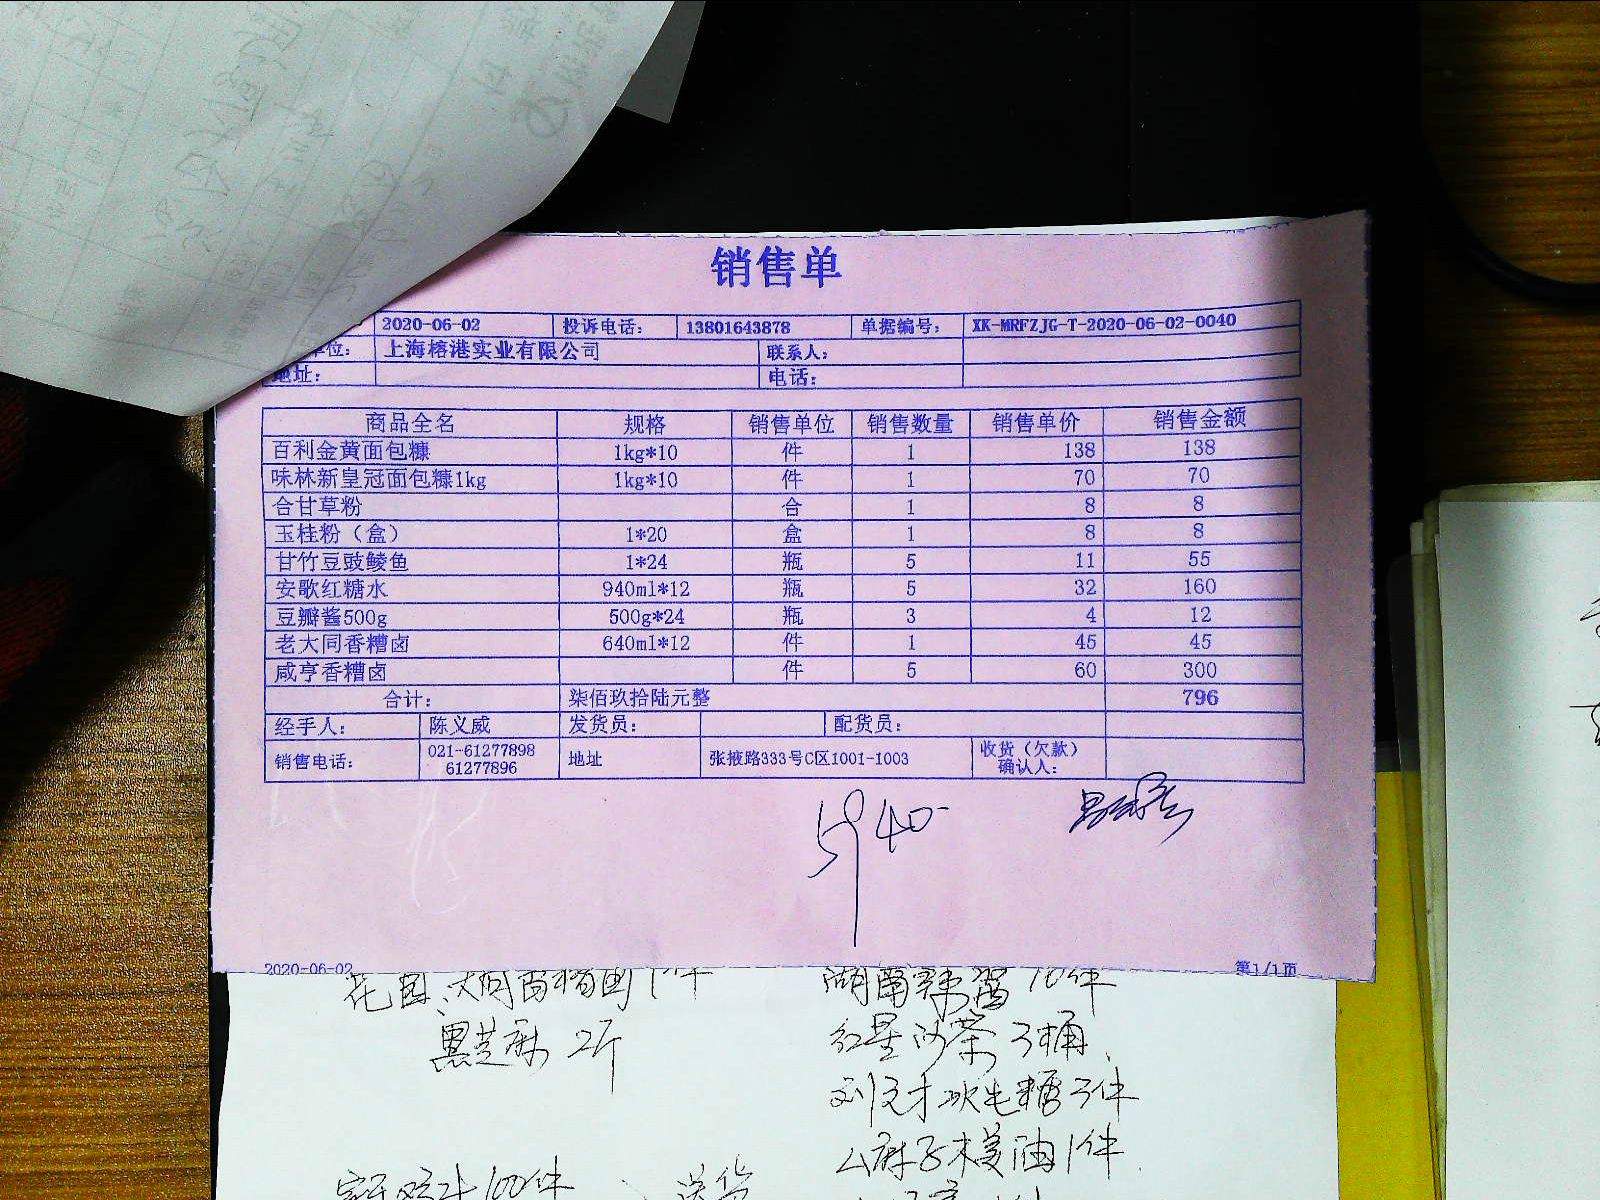 销售单
2020-06-02 投诉电话: 13801643878 单据编号: XK-MRFZJG-T-2020-06-02-0040
位: 上海榕港实业有限公司 联系人:
地址: 电话:
商品全名 规格 销售单位 销售数量 销售单价 销售金额
百利金黄面包糠 1kg*10 件 1 138 138
味林新皇冠面包糠1kg 1kg*10 件 1 70 70
合甘草粉 合 1 8 8
玉桂粉（盒） 1*20 盒 1 8 8
甘竹豆豉鲮鱼 1*24 瓶 5 11 55
安歌红糖水 940ml*12 瓶 5 32 160
豆瓣酱500g 500g*24 瓶 3 4 12
老大同香糟卤 640ml*12 件 1 45 45
咸亨香糟卤 件 5 60 300
合计: 柒佰玖拾陆元整 796
经手人: 陈义威 发货员: 配货员:
销售电话: 021-61277898 61277896 地址 张掖路333号C区1001-1003 收货（欠款）确认人:
5940
2020-06-02 第1/1页
花园 1件 湖南辣酱 10件
黑芝麻 2斤 红星沙茶 3桶
3件
木姜油1件
100件 送货